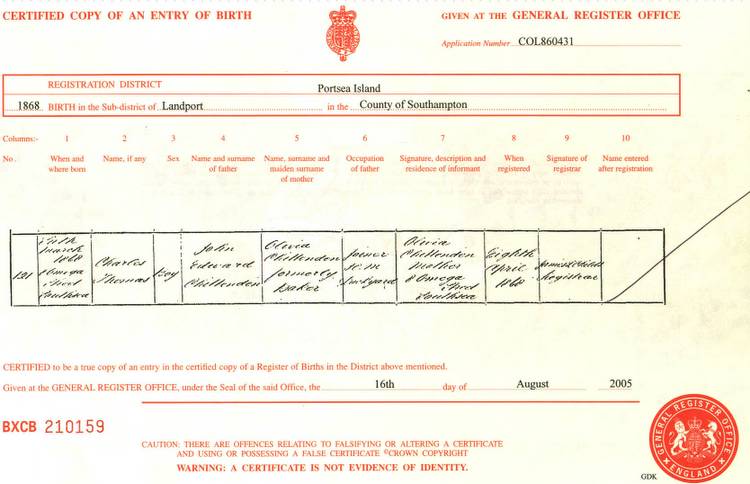 CERTIFIED COPY OF AN ENTRY OF BIRTH
GIVEN AT THE GENERAL REGISTER OFFICE
Application Number COL860431
REGISTRATION DISTRICT Portsea Island
1868 BIRTH in the Sub-district of Landport in the County of Southampton
Columns:- 1 2 3 4 5 6 7 8 9 10
No. When and where born Name, if any Sex Name and surname of father Name, surname and maiden surname of mother Occupation of father Signature, description and residence of informant When registered Signature of registrar Name entered after registration
March 1868 Omega Street Southsea
Charles Thomas
Boy
John Edward Chittenden
Olivia Chittenden formerly Baker
Joiner H.M. Dockyard
Olivia Chittenden Mother Omega Street Southsea
Eighth April 1868
Registrar
CERTIFIED to be a true copy of an entry in the certified copy of a Register of Births in the District above mentioned.
Given at the GENERAL REGISTER OFFICE, under the Seal of the said Office, the 16th day of August 2005
BXCB 210159
CAUTION: THERE ARE OFFENCES RELATING TO FALSIFYING OR ALTERING A CERTIFICATE
AND USING OR POSSESSING A FALSE CERTIFICATE ©CROWN COPYRIGHT
WARNING: A CERTIFICATE IS NOT EVIDENCE OF IDENTITY.
GENERAL REGISTER OFFICE
ENGLAND
GDK